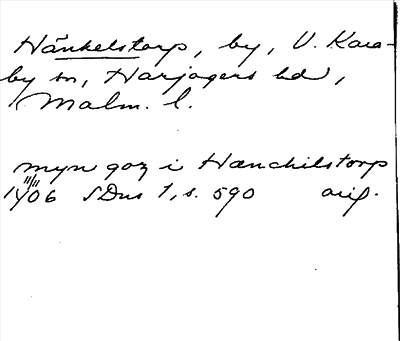 Hänkelstorp, by, V. Kara-
by sn, Harjagers hd,
Malm. l.
myn goz i Hænchilstorp
11/11 1406 SDns 1, s. 590 orig.